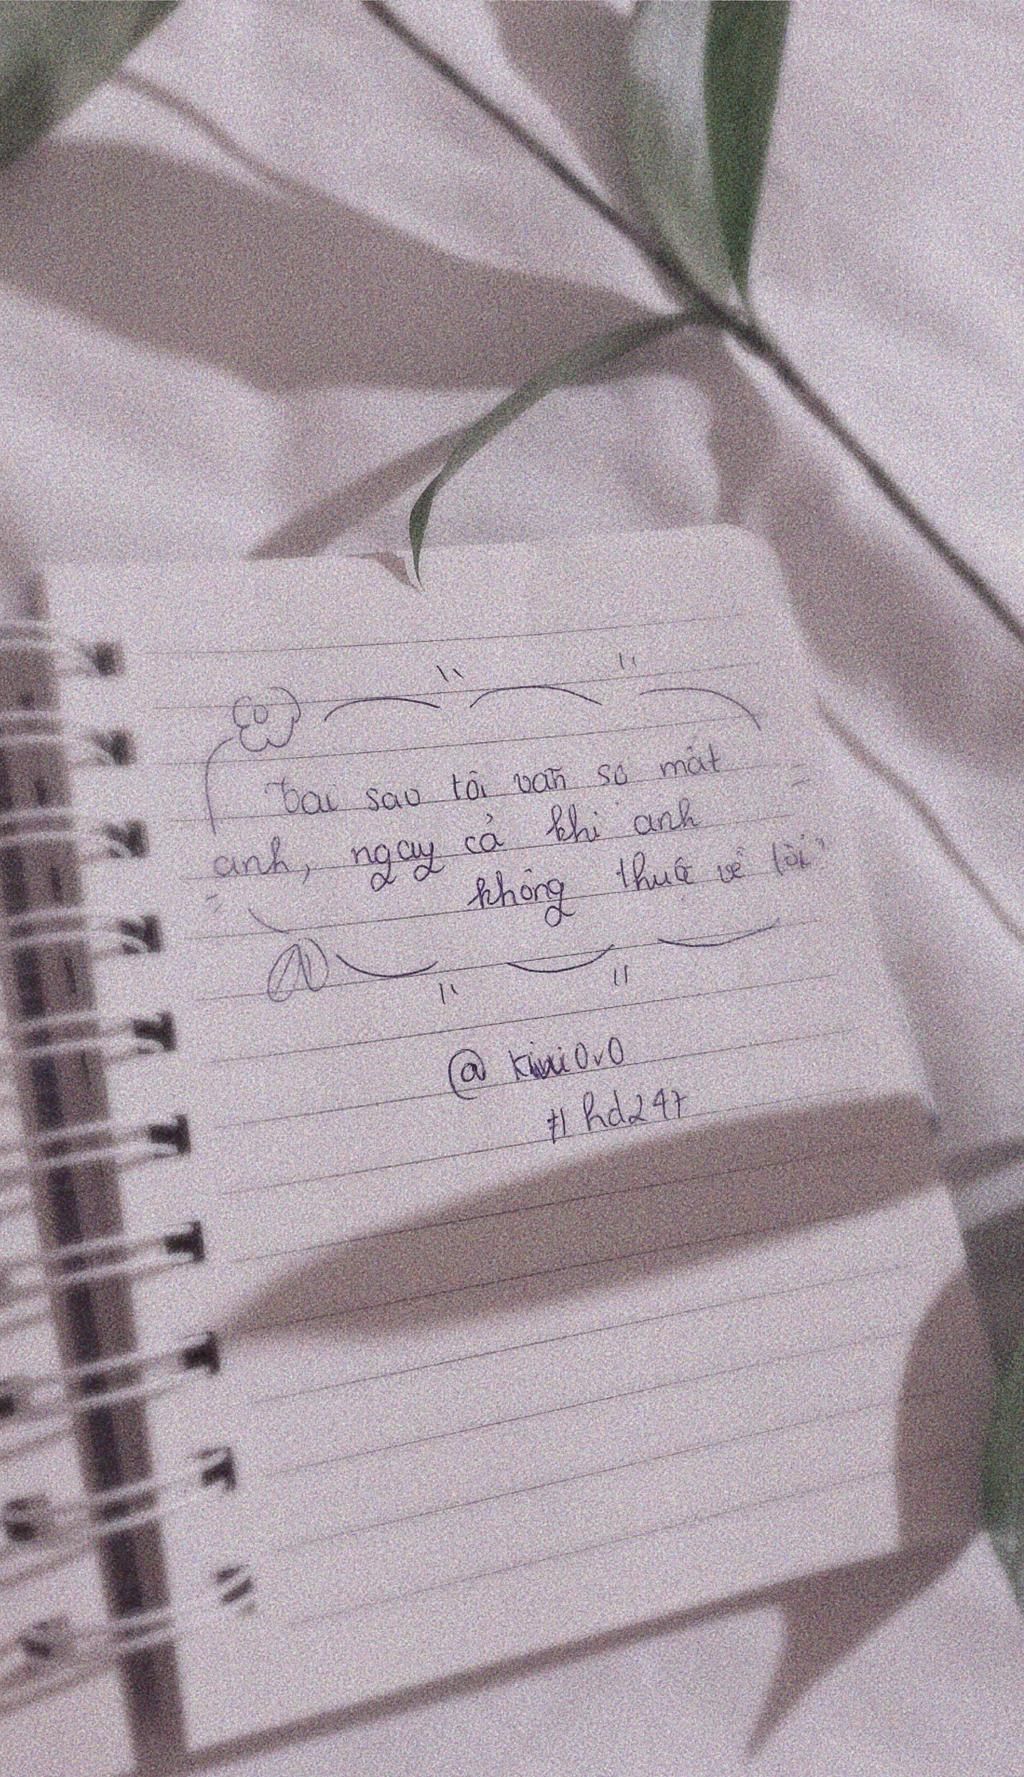 Tại sao tôi vẫn sợ mất
anh, ngay cả khi anh
không thuộc về tôi"
@ kiwi0v0
# hd247